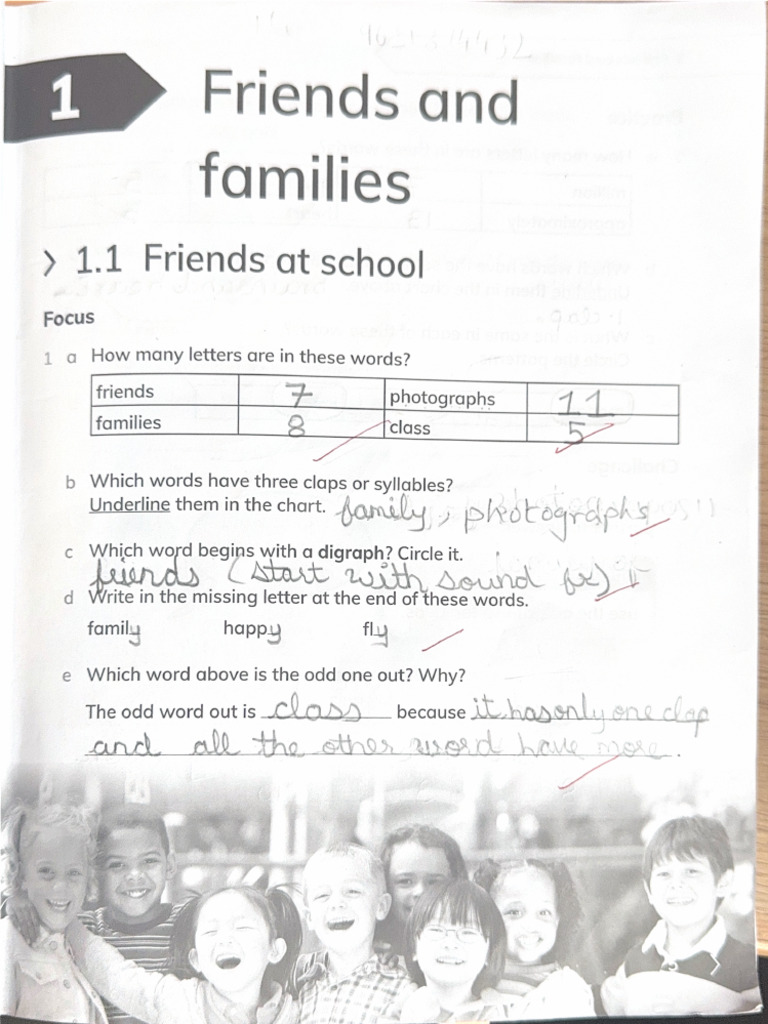 1
Friends and
families
1.1 Friends at school
Focus
1 a How many letters are in these words?
friends 7 photographs 11
families 8 class 5
b Which words have three claps or syllables?
Underline them in the chart. family, photographs
c Which word begins with a digraph? Circle it.
friends (start with sound fr)
d Write in the missing letter at the end of these words.
family happy fly
e Which word above is the odd one out? Why?
The odd word out is class because it has only one clap
and all the other word have more.